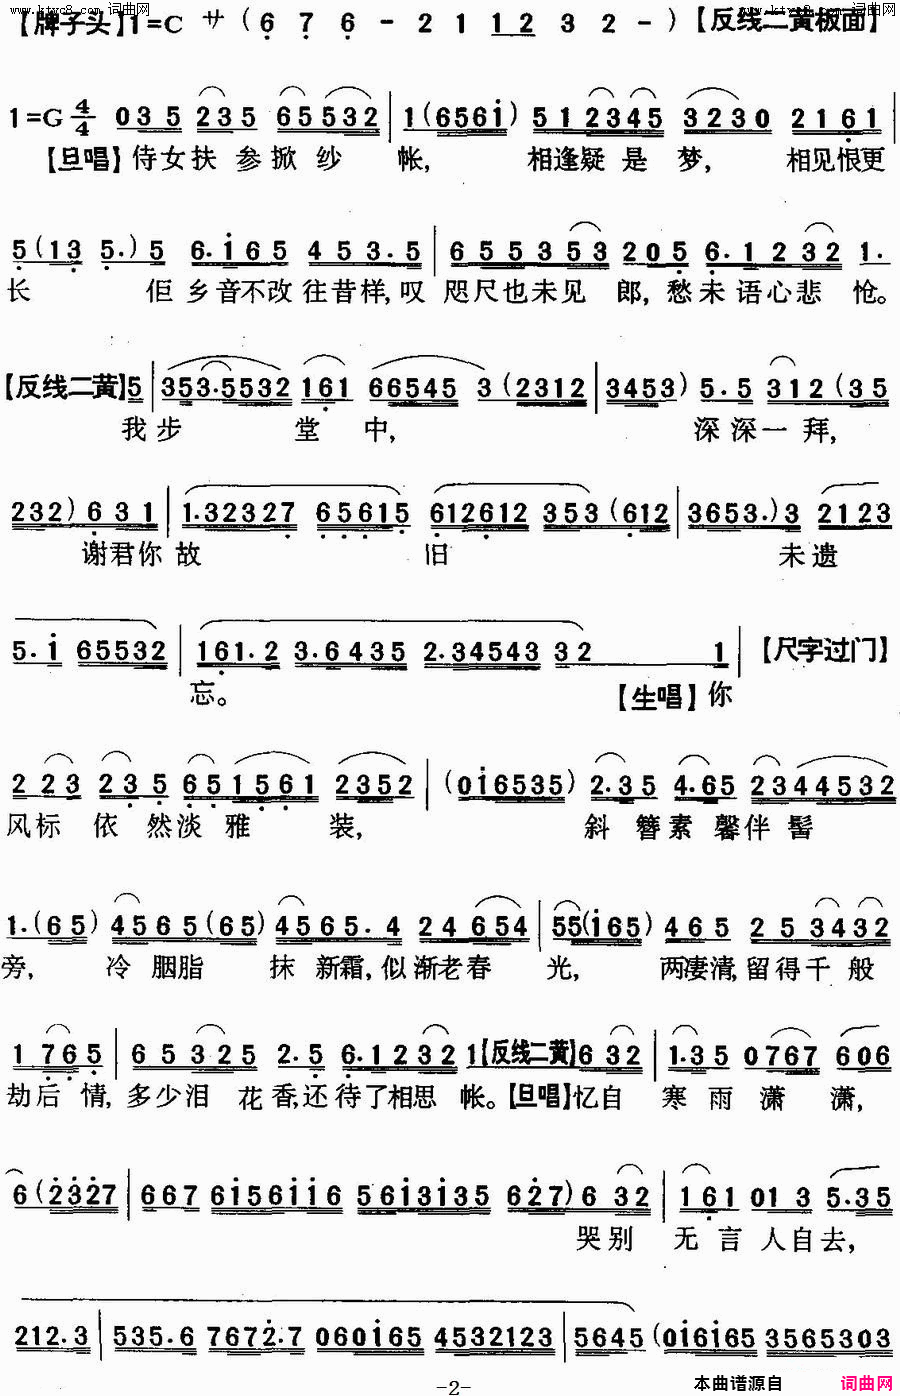 www.ktvc8.com 词曲网 www.ktvc8.com 词曲网
【牌子头】1=C サ ( 6 7 6 - 2 1 1 2 3 2 - ) 【反线二黄板面】
1=G 4/4 0 3 5 2 3 5 6 5 5 3 2 | 1 ( 6 5 6 i ) 5 1 2 3 4 5 3 2 3 0 2 1 6 1 |
【旦唱】侍女扶 参掀纱 帐, 相逢疑是梦, 相见恨更
5 ( 1 3 5 . ) 5 6 . i 6 5 4 5 3 . 5 | 6 5 5 3 5 3 2 0 5 6 . 1 2 3 2 1 .
长 佢乡音不改往昔样,叹 咫尺也未见 郎,愁未语心悲怆。
【反线二黄】5 | 3 5 3 . 5 5 3 2 1 6 1 6 6 5 4 5 3 ( 2 3 1 2 | 3 4 5 3 ) 5 . 5 3 1 2 ( 3 5
我步 堂 中, 深深一拜,
2 3 2 ) 6 3 1 | 1 . 3 2 3 2 7 6 5 6 1 5 6 1 2 6 1 2 3 5 3 ( 6 1 2 | 3 6 5 3 . ) 3 2 1 2 3
谢君你故 旧 未遗
5 . i 6 5 5 3 2 | 1 6 1 . 2 3 . 6 4 3 5 2 . 3 4 5 4 3 3 2 1 | 【尺字过门】
忘。 【生唱】你
2 2 3 2 3 5 6 5 1 5 6 1 2 3 5 2 | ( 0 i 6 5 3 5 ) 2 . 3 5 4 . 6 5 2 3 4 4 5 3 2
风标依然淡雅 装, 斜簪素馨伴髻
1 . ( 6 5 ) 4 5 6 5 ( 6 5 ) 4 5 6 5 . 4 2 4 6 5 4 | 5 5 ( i 6 5 ) 4 6 5 2 5 3 4 3 2
旁, 冷胭脂 抹新霜,似渐老春 光, 两凄清,留得千般
1 7 6 5 | 6 5 3 2 5 2 . 5 6 . 1 2 3 2 1【反线二黄】6 3 2 | 1 . 3 5 0 7 6 7 6 0 6
劫后情,多少泪花香,还待了相思帐。【旦唱】忆自 寒雨潇潇,
6 ( 2 3 2 7 | 6 6 7 6 i 5 6 i i 6 5 6 i 3 i 3 5 6 2 7 ) 6 3 2 | 1 6 1 0 1 3 5 . 3 5
哭别 无言人自去,
2 1 2 . 3 | 5 3 5 . 6 7 6 7 2 . 7 0 6 0 i 6 5 4 5 3 2 1 2 3 | 5 6 4 5 ( 0 i 6 i 6 5 3 5 6 5 3 0 3
-2-
本曲谱源自 词曲网